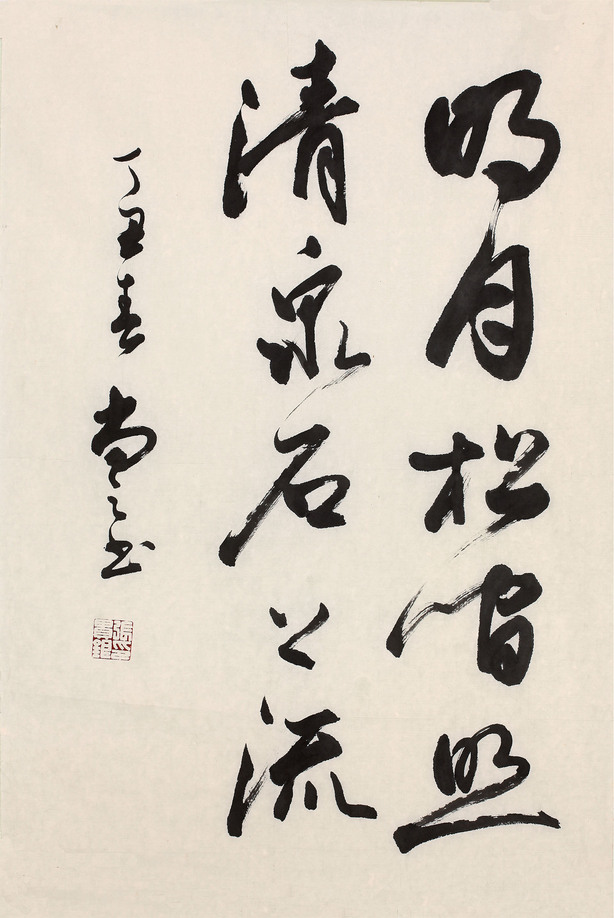 明月松间照
清泉石上流
丁丑春尚之书